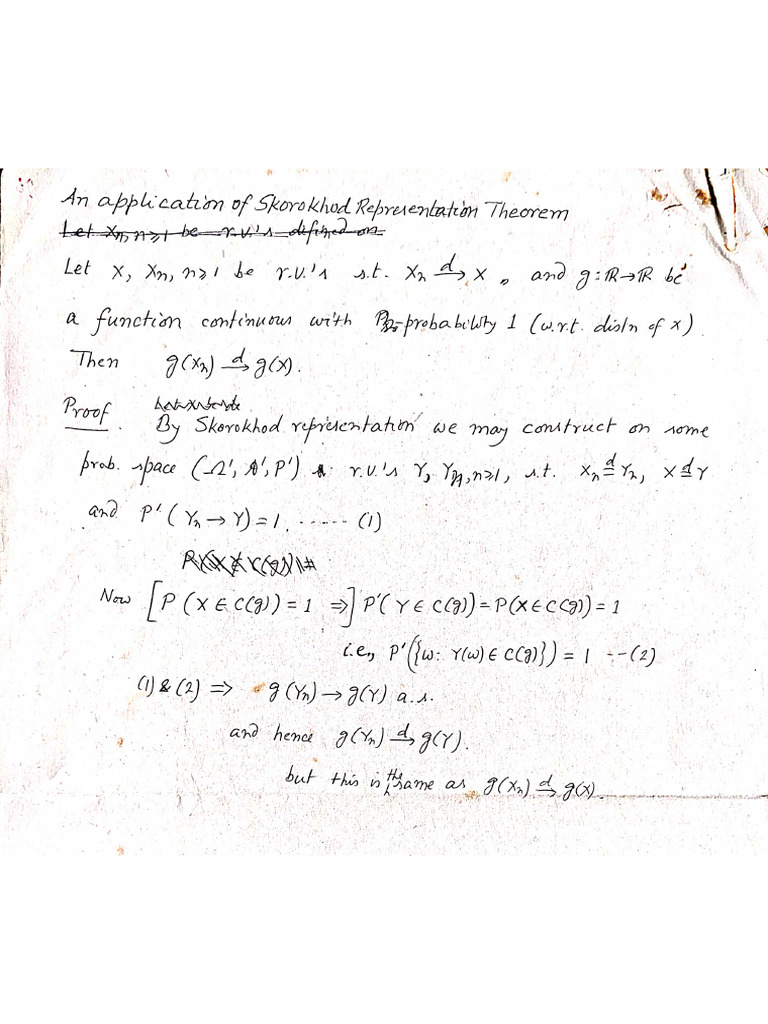 An application of Skorokhod Representation Theorem
Let Xn, n≥1 be r.v.'s defined on
Let X, Xn, n≥1 be r.v.'s s.t. Xn →d X, and g: ℝ→ℝ be
a function continuous with probability 1 (w.r.t. distn of X).
Then g(Xn) →d g(X).
Proof. By Skorokhod representation we may construct on some
prob. space (Ω', A', P') r.v.'s Y, Yn, n≥1, s.t. Xn =d Yn, X =d Y
and P'(Yn → Y) = 1 ...... (1)
Now [P(X ∈ C(g)) = 1 ⇒] P'(Y ∈ C(g)) = P(X ∈ C(g)) = 1
i.e., P'({ω: Y(ω) ∈ C(g)}) = 1 --(2)
(1) & (2) ⇒ g(Yn) → g(Y) a.s.
and hence g(Yn) →d g(Y).
but this is the same as g(Xn) →d g(X).